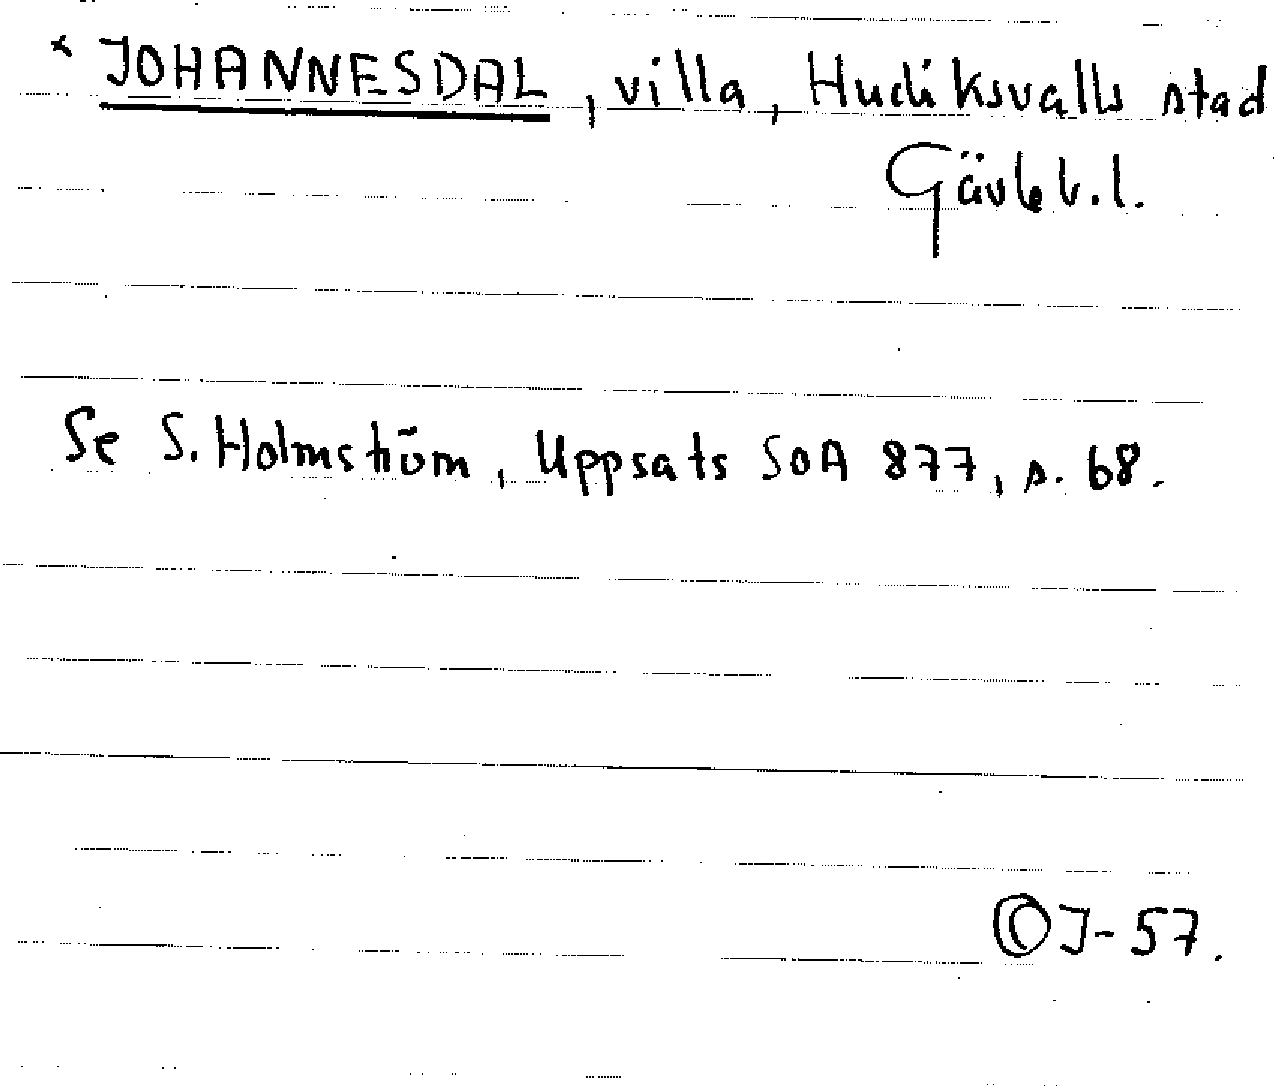 × JOHANNESDAL, villa, Hudiksvalls stad
Gävleb.l.
Se S. Holmström, Uppsats SOA 877, s. 68.
ⒸJ-57.